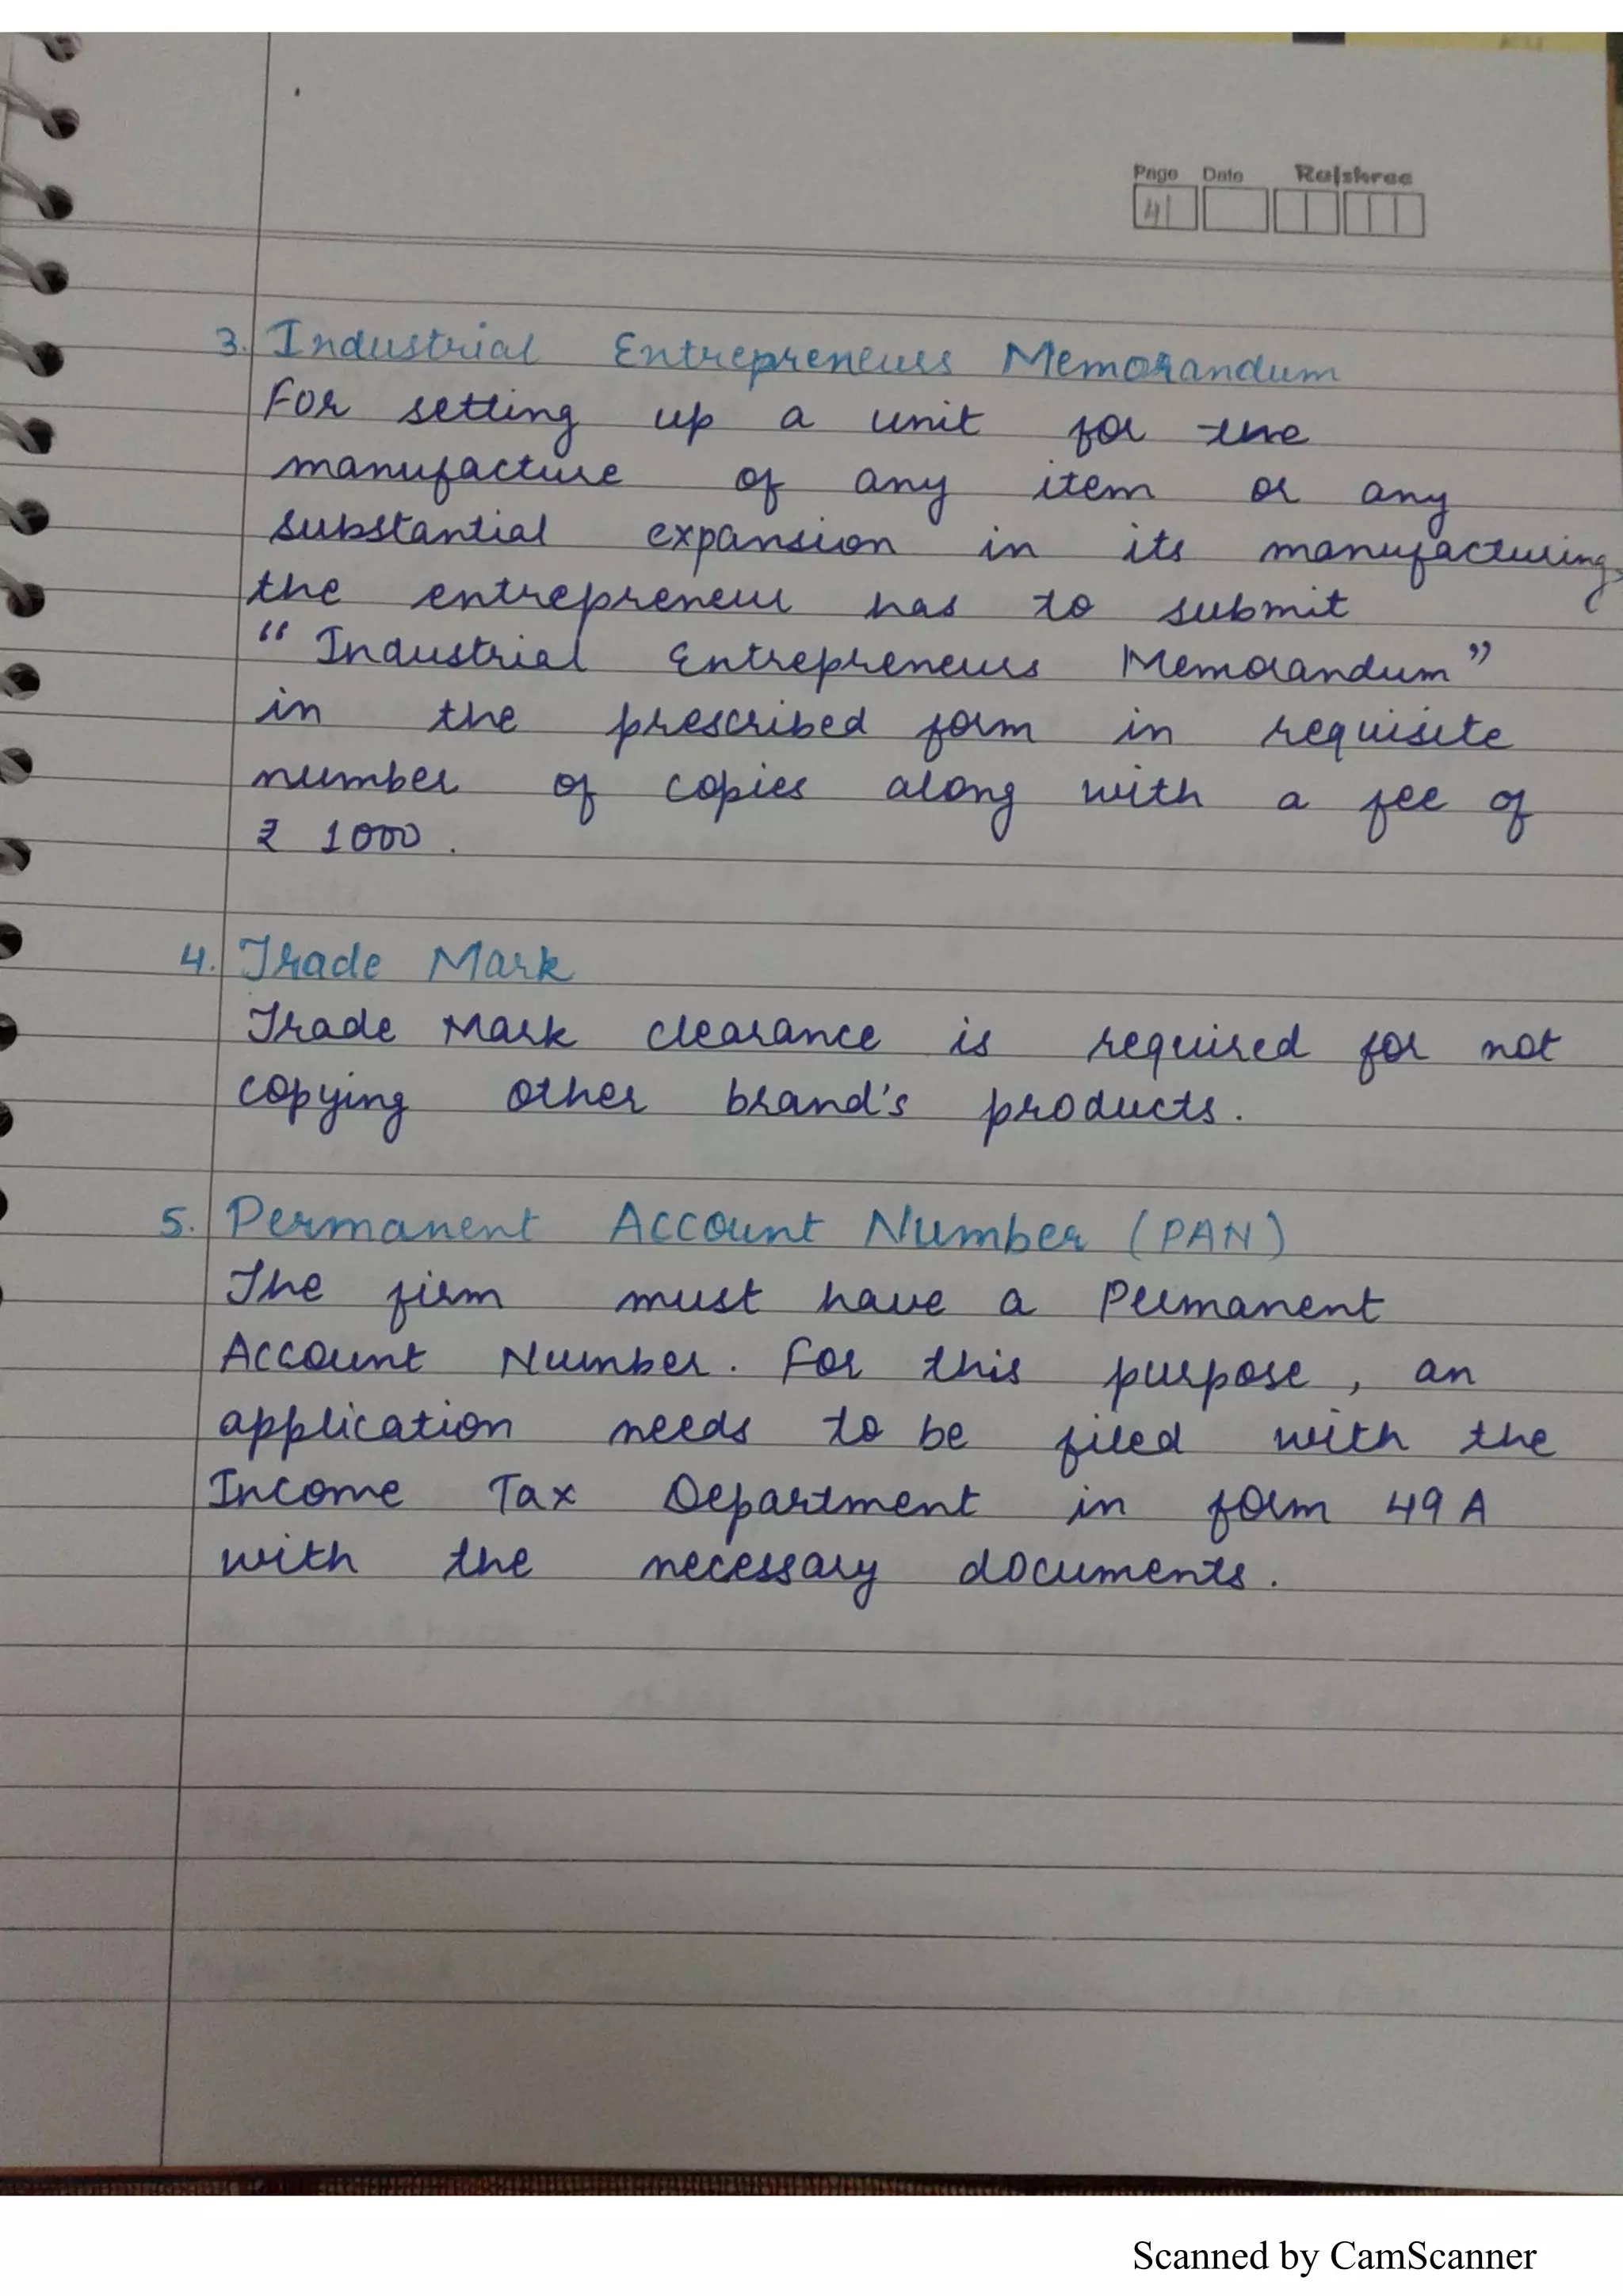 Page Date Rajshree
41
3. Industrial Entrepreneurs Memorandum
For setting up a unit for the
manufacture of any item or any
substantial expansion in its manufacturing,
the entrepreneur has to submit
“Industrial Entrepreneurs Memorandum”
in the prescribed form in requisite
number of copies along with a fee of
₹ 1000.
4. Trade Mark
Trade Mark clearance is required for not
copying other brand's products.
5. Permanent Account Number (PAN)
The firm must have a Permanent
Account Number. For this purpose, an
application needs to be filed with the
Income Tax Department in form 49A
with the necessary documents.
Scanned by CamScanner